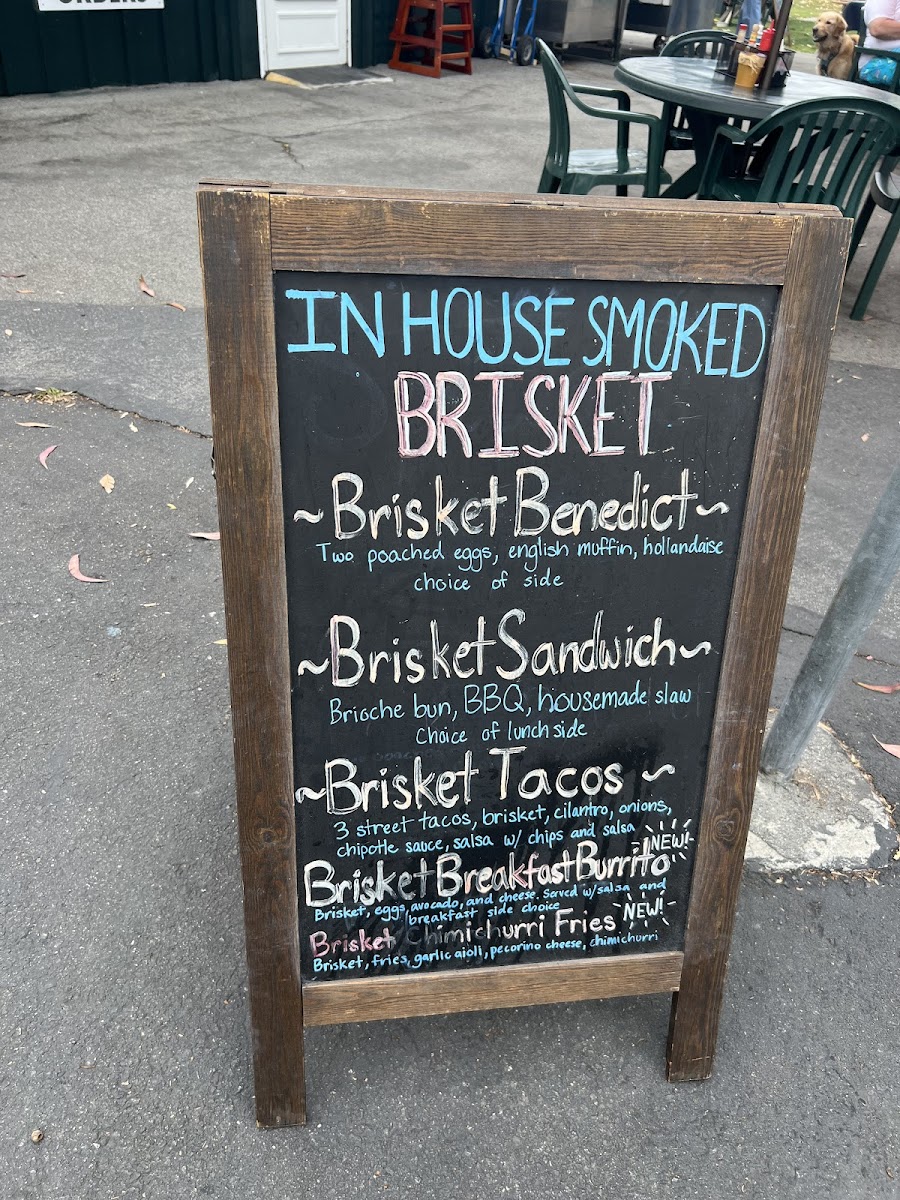 ORDERS
IN HOUSE SMOKED
BRISKET
~Brisket Benedict~
Two poached eggs, english muffin, hollandaise
choice of side
~Brisket Sandwich~
Brioche bun, BBQ, housemade slaw
Choice of lunch side
~Brisket Tacos~
3 street tacos, brisket, cilantro, onions,
chipotle sauce, salsa w/ chips and salsa
NEW!
Brisket Breakfast Burrito
Brisket, eggs, avocado, and cheese. Served w/salsa and
breakfast side choice
NEW!
Brisket Chimichurri Fries
Brisket, fries, garlic aioli, pecorino cheese, chimichurri